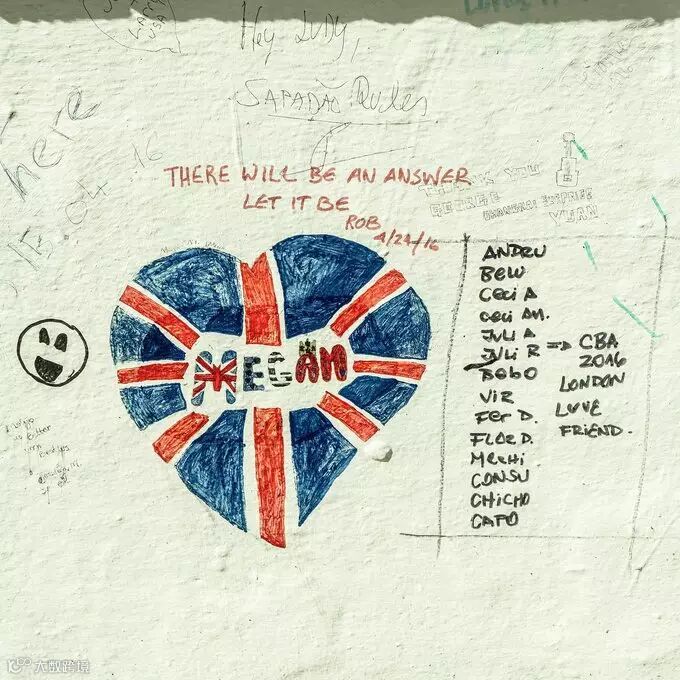 Hey Judy,
SAPADÃO Rules
here
15.04.16
THERE WILL BE AN ANSWER
LET IT BE
ROB
4/24/16
THANK YOU
GEORGE
YUAN
MEGAN
ANDRU
BELU
CECI A
CECI AM.
JULI A
JULI R => CBA
2016
LONDON
LOVE
FRIEND.
BOBO
VIR
FER D.
FLOR D.
MECHI
CONSU
CHICHO
CAPO
大数跨境